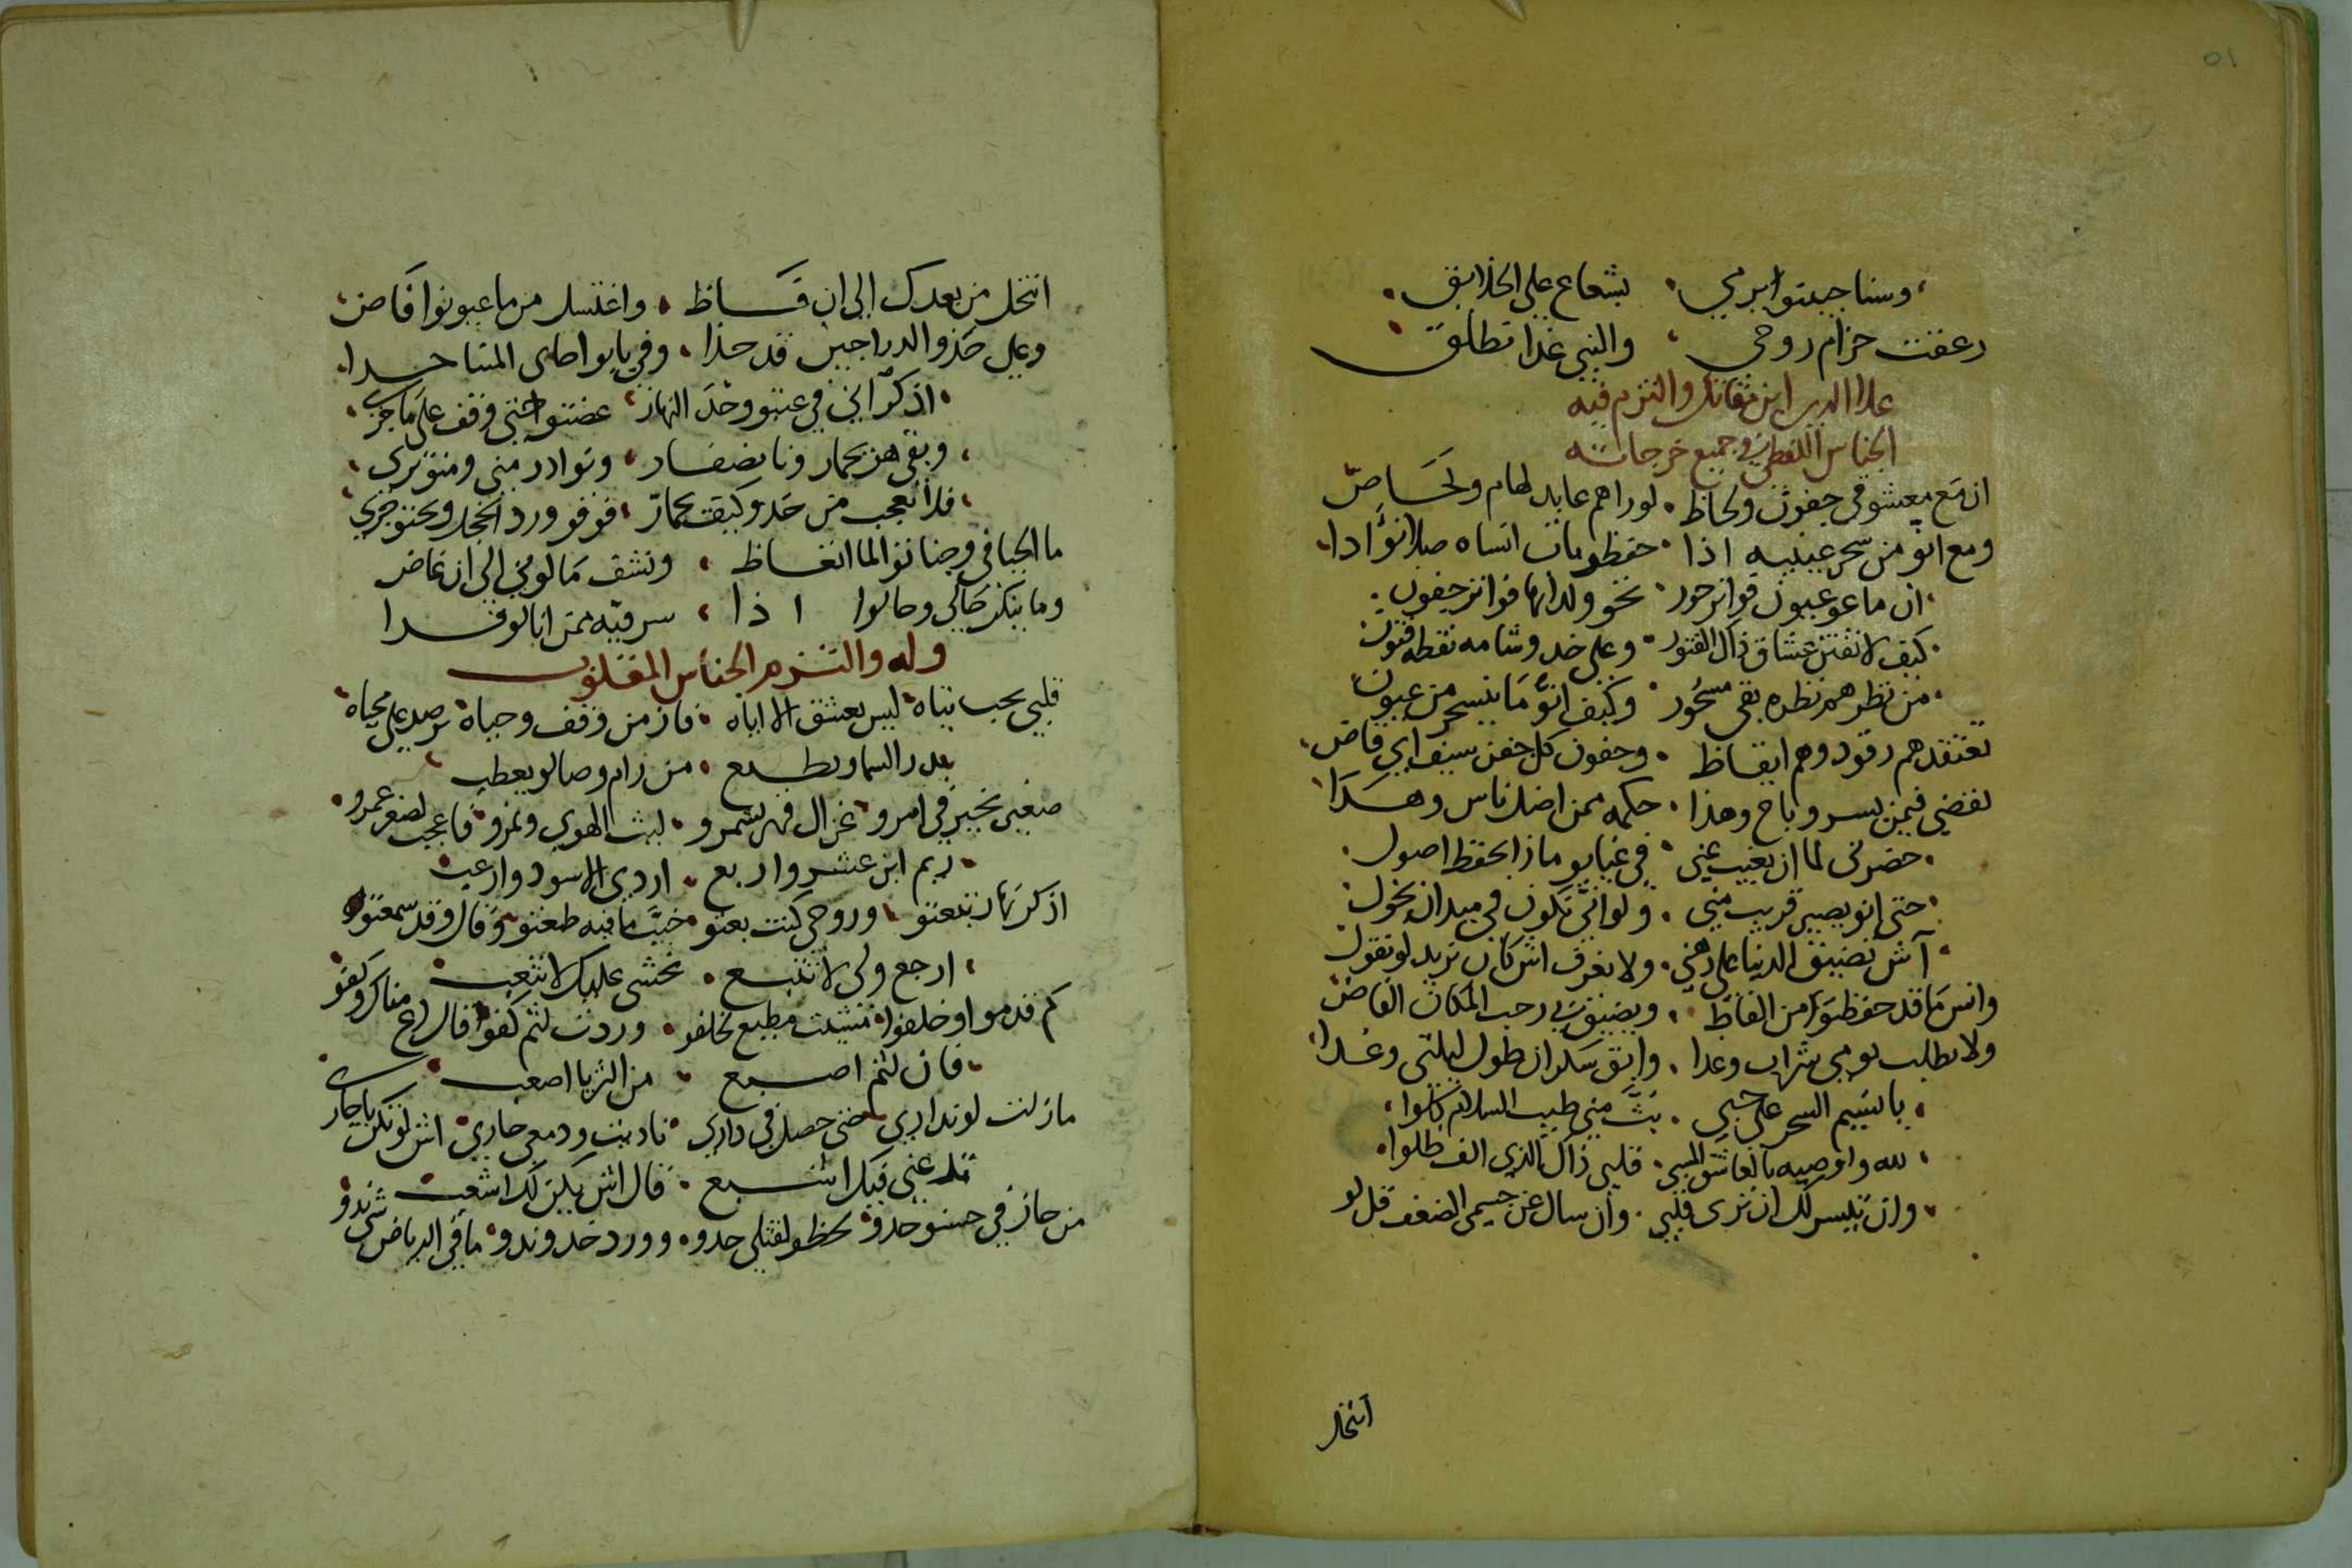 ٥١
وسنا جبينو ابرمي بشعاع على الخلايق
رعفت حزام روحي والنبي غدا تطلق
علاا الدين ابن مقاتل والتزم فيه
الجناس اللفظي في جميع خرجاته
ان مع معشوقي جفون ولحاظ لوراهم عابد لهام ولحاض
ومع انو من سحر عينيه اذا حفظو مات انساه صلا نوادا
ان ماعو عيون فواتر حور نحو ولدانها فواتر جفون
كيف لا تفتن عشاق ذاك الفتور وعلى خدو شامه نقطه فتون
من نظر هم نظره بقي مسحور وكيف انو ما ينسحر من عيون
تعتقدهم رقود وهم ايقاظ وجفون كل جفن سيف اي قاض
تفضي فيمن يسرو باح وهذا حكمه ممن اضل ناس وهدا
حضرني لما ان يغيب عني في غيابو ماذا بحفظ اصول
حتى انو يصير قريب مني ولو اني نكون في ميدان نجول
آش تضيق الدنيا على ذهني ولا نعرف اش كان نريد لو نقول
وانس ما قد حفظتو من الفاظ ويضيق بي رحب المكان الفاض
ولا نطلب يومي شراب وغدا وابق سكران طول ليلتي وغدا
يا نسيم السحر على حبي بث مني طيب السلام كلوا
لله واوصيه بالعاشق المسبي قلبي ذاك الذي الف ظلوا
وان تيسر لك ان ترى قلبي وان سال عن جسمي الضعف قل لو
انتحل
انتحل من بعدك الى ان قاظ واغتسل من ما عيونوا فاض
وعلى خدو الدراجين قد حذا وفي بابو اصاى المتنا حدا
اذكر اني في عتبو وخد النهاز عضتو احتى وقف على ما جرى
وبقى هن يحمار ونا نصفار ونوادر مني ومنو ترى
فلا تعجب من خدو كيف يحمار فوفو ورد الخجل وتحتو جرى
ما الحيا في وجناتو الما انغاظ ونشف ما لوني الى ان غاض
وما ينكر حالي وحالوا اذا سرقيه ممن انا لو فدا
وله والتزم الجناس المقلوب
قلبي يحب تياه ليس يعشق الا اياه فاز من وقف وحياه يرصد على محياه
بدر السما ويطبع من رام وصالو يعطب
صغير يحير في امرو غزال قهر سمرو ليث الهوى ونمرو فاعجب لصغر عمرو
ريم ابن عشر واربع اردى الاسود وارعب
اذكر نهار تبعتو وروحي كنت بعتو خيب ما فيه طمعتو وقال وقد سمعتو
ارجع ولى لا تتبع نخشى عليك لا تتعب
كم قدمو او خلفوا مشيت مطيع لخلفو وردت لثم كفو قال دع مناكر وكفو
فان لثم اصبع من الثريا اصعب
مازلت لو نداري حتى حصل في داري ناديت ودمعي جاري اش لو تكن يا جاري
تدعني فيك اشبع قال اش يكن لك اشعب
من حاز في حسنو حدو لحظو لقتلي حدو وورد خدو وندو ما في الرياض شي ندو